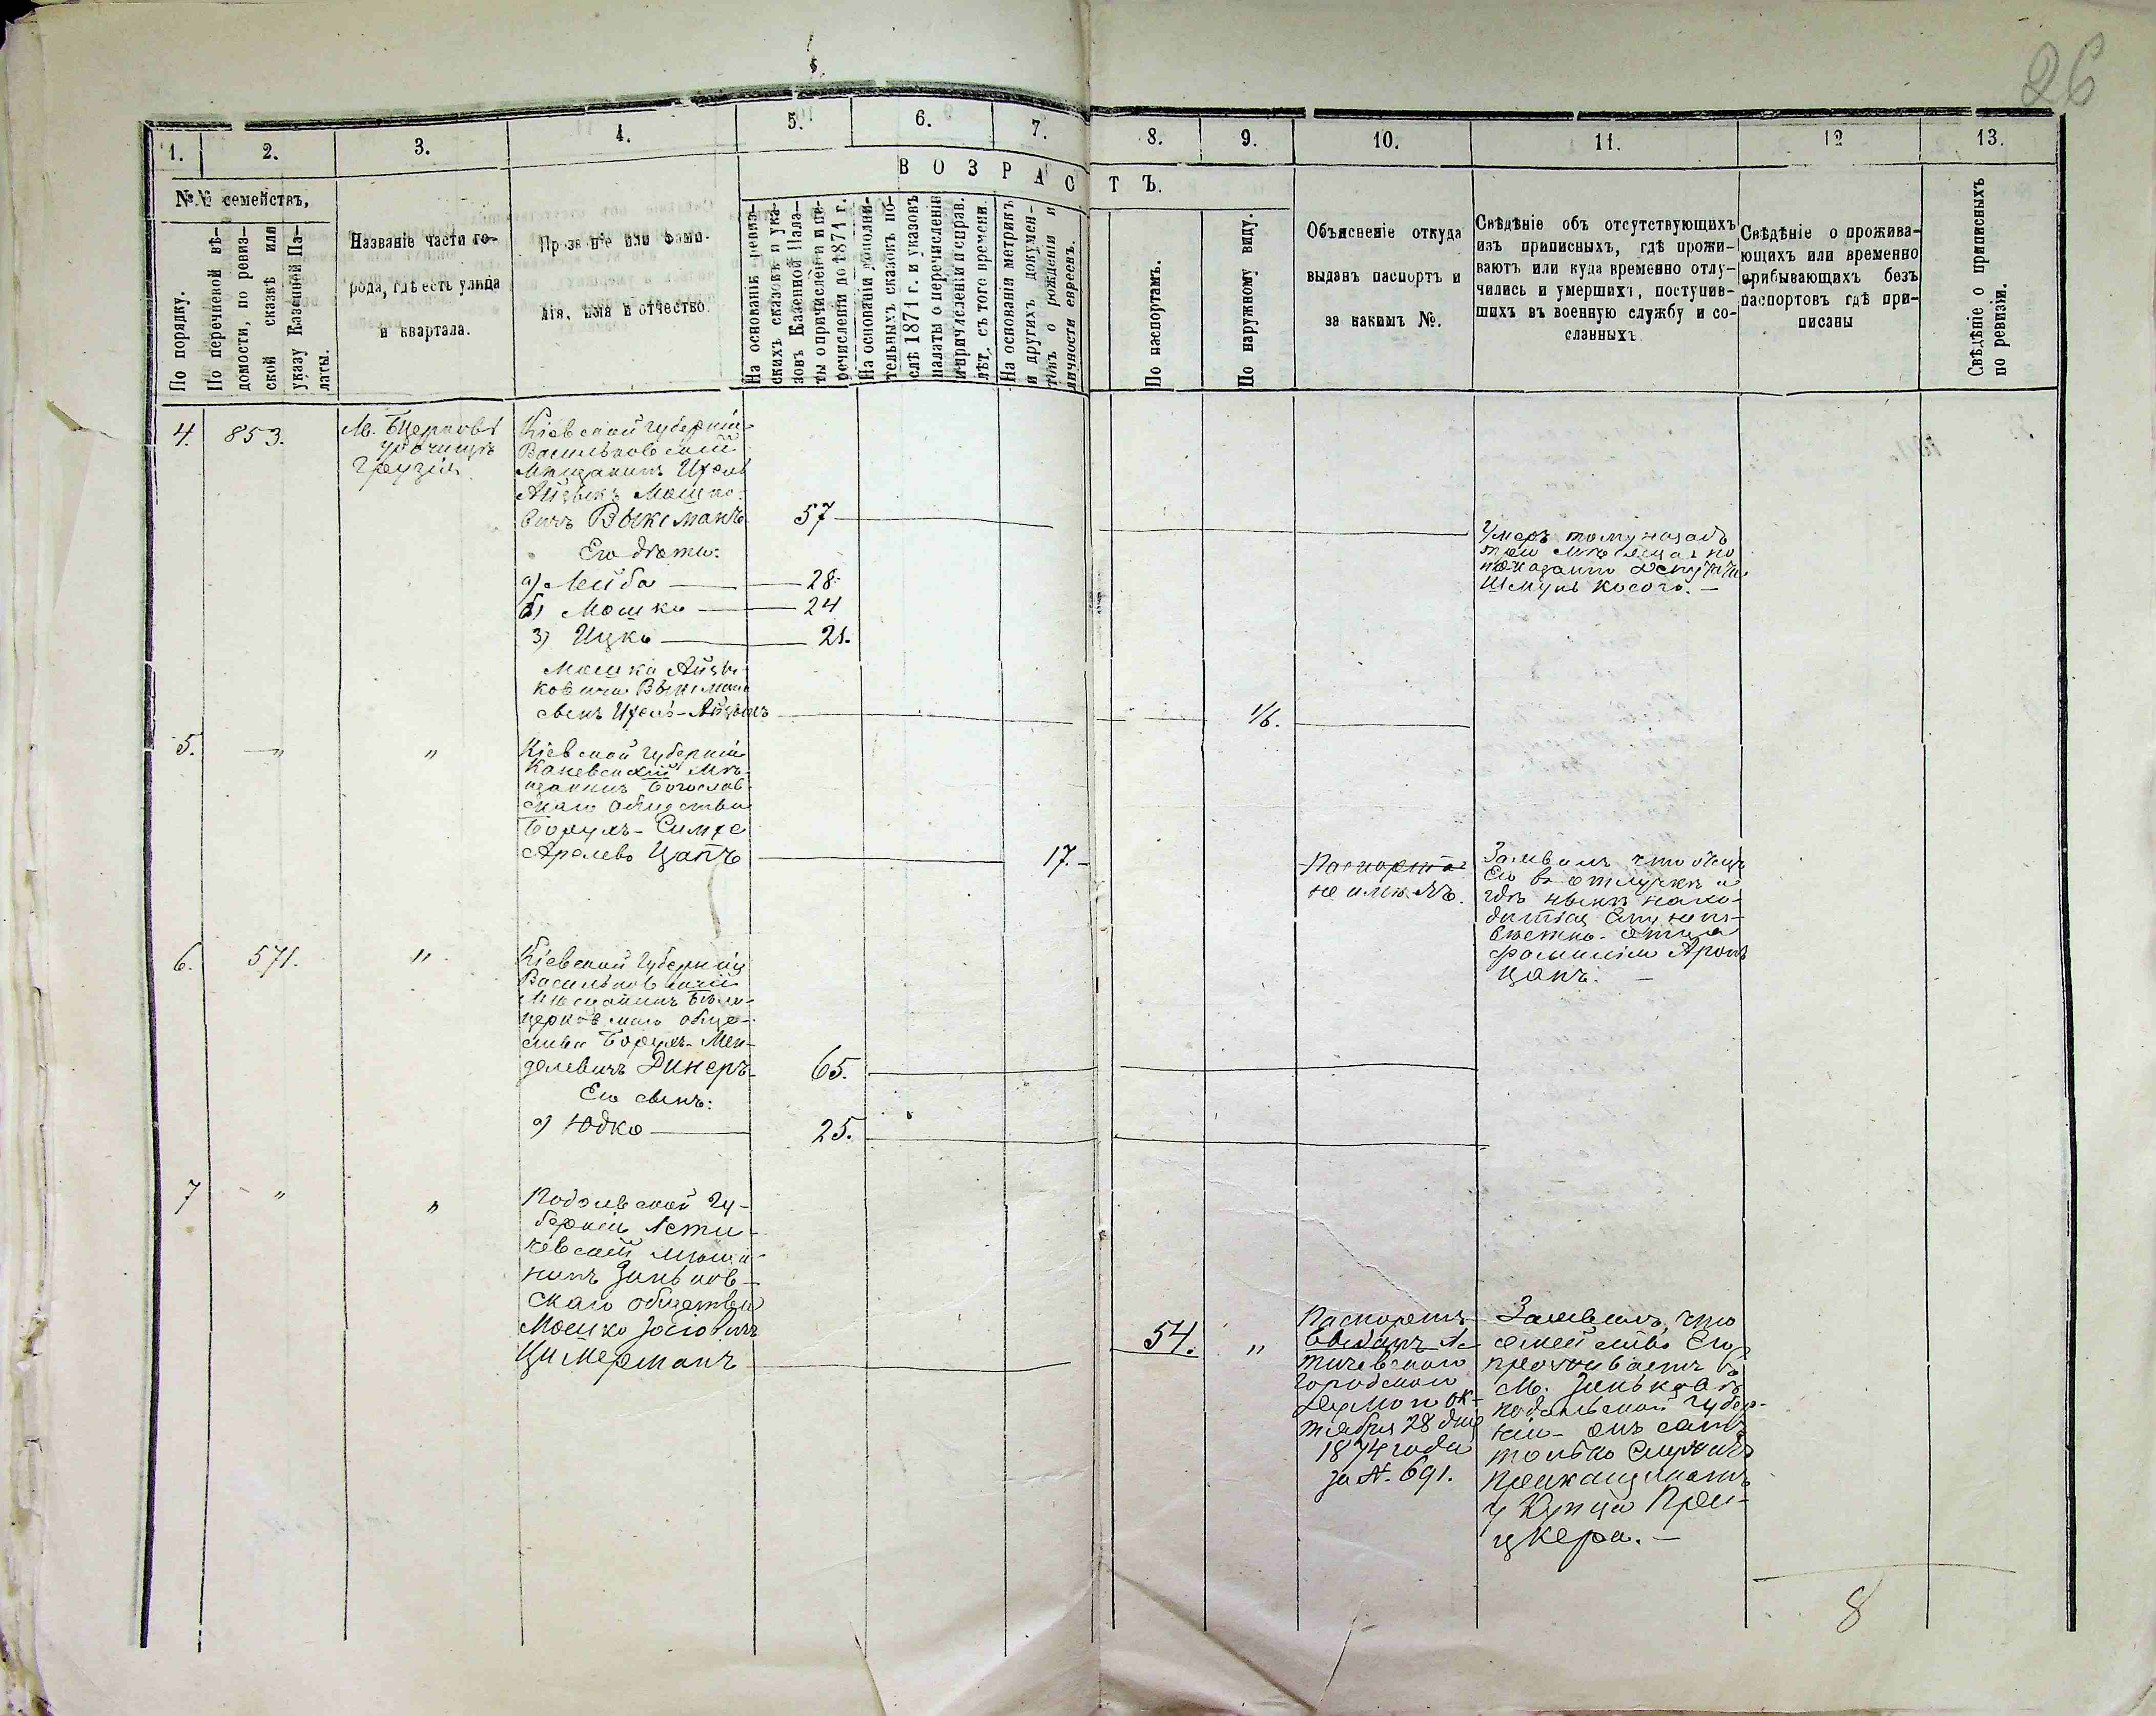 26
1.
2.
3.
4.
5.
6.
7.
8.
9.
10.
11.
12
13.
В О З Р А С Т Ъ.
№№ семействъ,
По порядку.
По перечневой вѣ-
домости, по ревиз-
ской сказкѣ или
указу Казенной Па-
латы.
Названіе части го-
рода, гдѣ есть улица
и квартала.
Прозваніе или фами-
лія, имя и отчество.
На основаніи ревиз-
скихъ сказокъ и ука-
зовъ Казенной Пала-
ты о причисленіи и пе-
речисленіи до 1871 г.
На основаніи дополни-
тельныхъ сказокъ по-
слѣ 1871 г. и указовъ
палаты о перечисленіи
и причисленіи и справ.
лѣт. съ того времени.
На основаніи метрикъ
и другихъ докумен-
товъ о рожденіи и
личности евреевъ.
По паспортамъ.
По наружному виду.
Объясненіе откуда
выданъ паспортъ и
за какимъ №.
Свѣдѣніе объ отсутствующихъ
изъ приписныхъ, гдѣ прожи-
ваютъ или куда временно отлу-
чились и умершихъ, поступив-
шихъ въ военную службу и со-
сланныхъ
Свѣдѣніе о прожива-
ющихъ или временно
прибывающихъ безъ
паспортовъ гдѣ при-
писаны
Свѣдѣніе о приписныхъ
по ревизіи.
4.
853.
М. Бцерковь
урочище
Грузія
Кіевской губерніи
Васильковскій
Мѣщанинъ Ихель
Айзыкъ Мошко-
вичъ Выксманъ
57
Умеръ тому назадъ
три мѣсяца по
показанію Депутата
Шмуль Косого. —
Его дѣти:
а) Лейба
28.
б) Мошко
24
3) Ицко
21.
Мошка Айзы-
ковича Выксмана
сынъ Ихель-Айзыкъ
1/6.
5.
"
"
Кіевской губерніи
Каневскій Мѣ-
щанинъ Богослав-
скаго общества
Борухъ-Симха
Аролевъ Цапъ
17.
Паспорта
не имѣетъ.
Заявилъ что отецъ
Его въ отлучкѣ и
гдѣ нынѣ нахо-
дится ему неиз-
вѣстно. Отца
фамилія Аронъ
Цапъ. —
6.
571.
"
Кіевской Губерніи
Васильковскій
Мѣщанинъ Бѣло-
церковскаго обще-
ства Борухъ Мен-
делевичъ Динеръ
65.
Его сынъ:
а) Юдко
25.
7
"
"
Подольской Гу-
берніи Лети-
чевскій мѣща-
нинъ Зиньков-
скаго общества
Мошко Іосіовичъ
Цимерманъ
54.
"
Паспортъ
выданъ Ле-
тичевскою
Городскою
Думою ок-
тября 28 дня
1874 года
за №. 691.
Заявилъ, что
семейство Его
проживаетъ въ
М. Зиньковѣ
подольской губер-
ніи - онъ самъ
только служитъ
прикащикомъ
у Купца При-
цкера. —
8